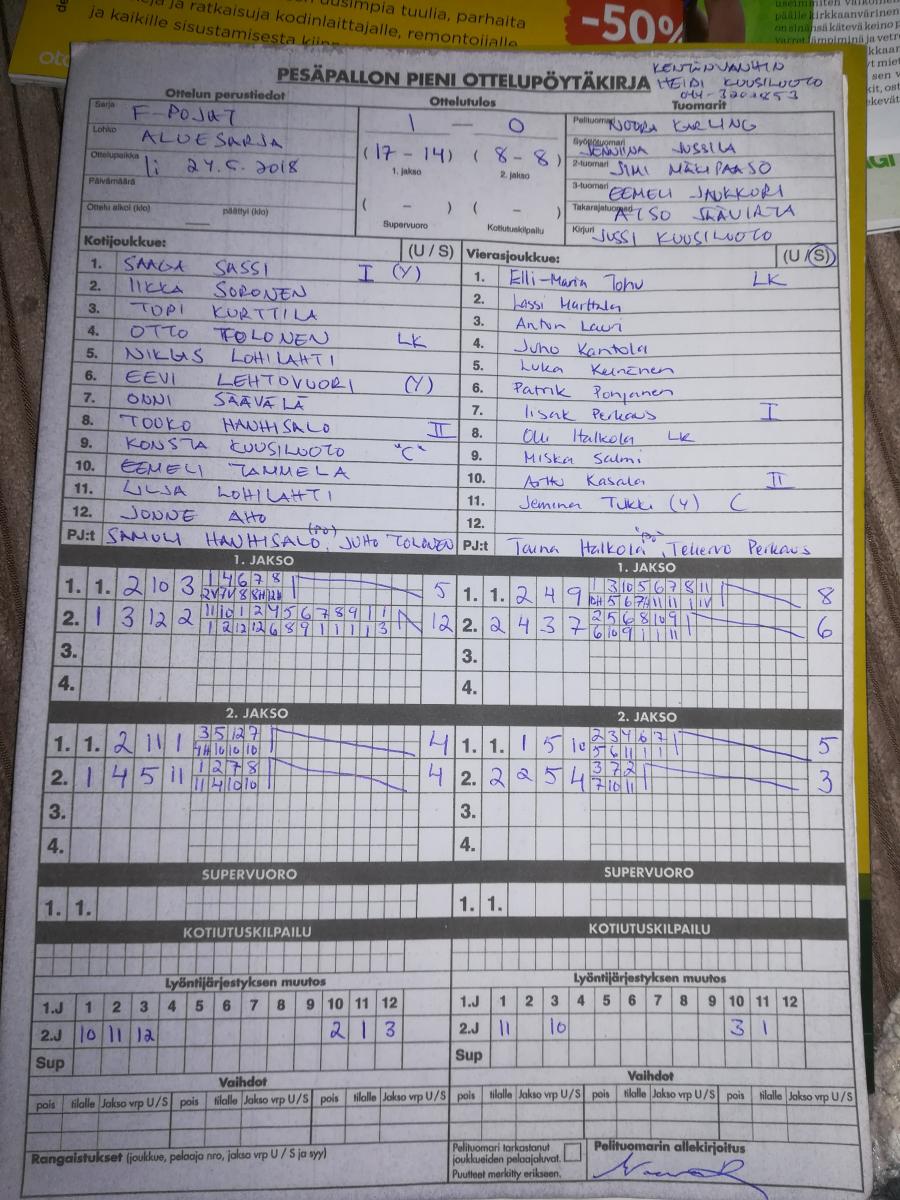 uusimpia tuulia, parhaita
ja ratkaisuja kodinlaittajalle, remontoijalle
ja kaikille sisustamisesta
-50%
PESÄPALLON PIENI OTTELUPÖYTÄKIRJA
KENTÄNVANHIN
HEIDI KUUSILUOTO
Ottelun perustiedot
Ottelutulos
Tuomarit
Sarja F-POJAT
Lohko ALUESARJA
Ottelupaikka Ii 24.5.2018
Päivämäärä
Ottelu alkoi (klo) päättyi (klo)
1 — 0
(17 - 14) (8 - 8)
1. jakso 2. jakso
( - ) ( - )
Supervuoro Kotiutuskilpailu
Pelituomari NOORA KARLING
Syöttötuomari JENNIINA JUSSILA
2-tuomari SIMI MÄKIPAASO
3-tuomari EEMELI JAUKKURI
Takarajatuomari ATSO
Kirjuri JUSSI KUUSILUOTO
Kotijoukkue: (U / S)
1. SAAGA SASSI I (Y)
2. IIKKA SORONEN
3. TOPI KURTTILA
4. OTTO TOLONEN LK
5. NIKLAS LOHILAHTI
6. EEVI LEHTOVUORI (Y)
7. ONNI SÄÄVÄLÄ
8. TOUKO HANHISALO II
9. KONSTA KUUSILUOTO "C"
10. EEMELI TAMMELA
11. LILJA LOHILAHTI
12. JONNE AHO
PJ:t SAMULI HANHISALO (PJ), JUHO TOLONEN
Vierasjoukkue: (U / S)
1. Elli-Maria LK
2. Lassi Harttala
3. Anton Lauri
4. Juho Kantola
5. Luka Keinänen
6. Patrik Pohjanen
7. Iisak Perkaus I
8. Olli Halkola LK
9. Miska Salmi
10. Arttu Kasala II
11. Jemina Tukki (Y) C
12.
PJ:t Taina Halkola, Tehervo Perkaus
1. JAKSO
1. 1. 2 10 3 1 4 6 7 8 5
2. 1 3 12 2 11 10 1 2 4 5 6 7 8 9 1 1 12
1 2 12 12 6 8 9 1 1 1 1 3
3.
4.
1. JAKSO
1. 1. 2 4 9 1 3 10 5 6 7 8 11 8
2. 2 4 3 7 2 5 6 8 10 9 6
6 10 9 1 1 11
3.
4.
2. JAKSO
1. 1. 2 11 1 3 5 12 7 4
4H 10 10 10
2. 1 4 5 11 1 2 7 8 4
11 4 10 10
3.
4.
2. JAKSO
1. 1. 1 5 10 2 3 4 6 7 5
5 6 11 1 1
2. 2 2 5 4 3 7 2 3
7 10 11
3.
4.
SUPERVUORO
1. 1.
SUPERVUORO
1. 1.
KOTIUTUSKILPAILU
KOTIUTUSKILPAILU
Lyöntijärjestyksen muutos
1.J 1 2 3 4 5 6 7 8 9 10 11 12
2.J 10 11 12 2 1 3
Sup
Lyöntijärjestyksen muutos
1.J 1 2 3 4 5 6 7 8 9 10 11 12
2.J 11 10 3 1
Sup
Vaihdot
pois tilalle Jakso vrp U/S pois tilalle Jakso vrp U/S pois tilalle Jakso vrp U/S
Vaihdot
pois tilalle Jakso vrp U/S pois tilalle Jakso vrp U/S pois tilalle Jakso vrp U/S
Rangaistukset (joukkue, pelaaja nro, jakso vrp U / S ja syy)
Pelituomari tarkastanut
joukkueiden pelaajaluvat.
Puutteet merkitty erikseen.
Pelituomarin allekirjoitus